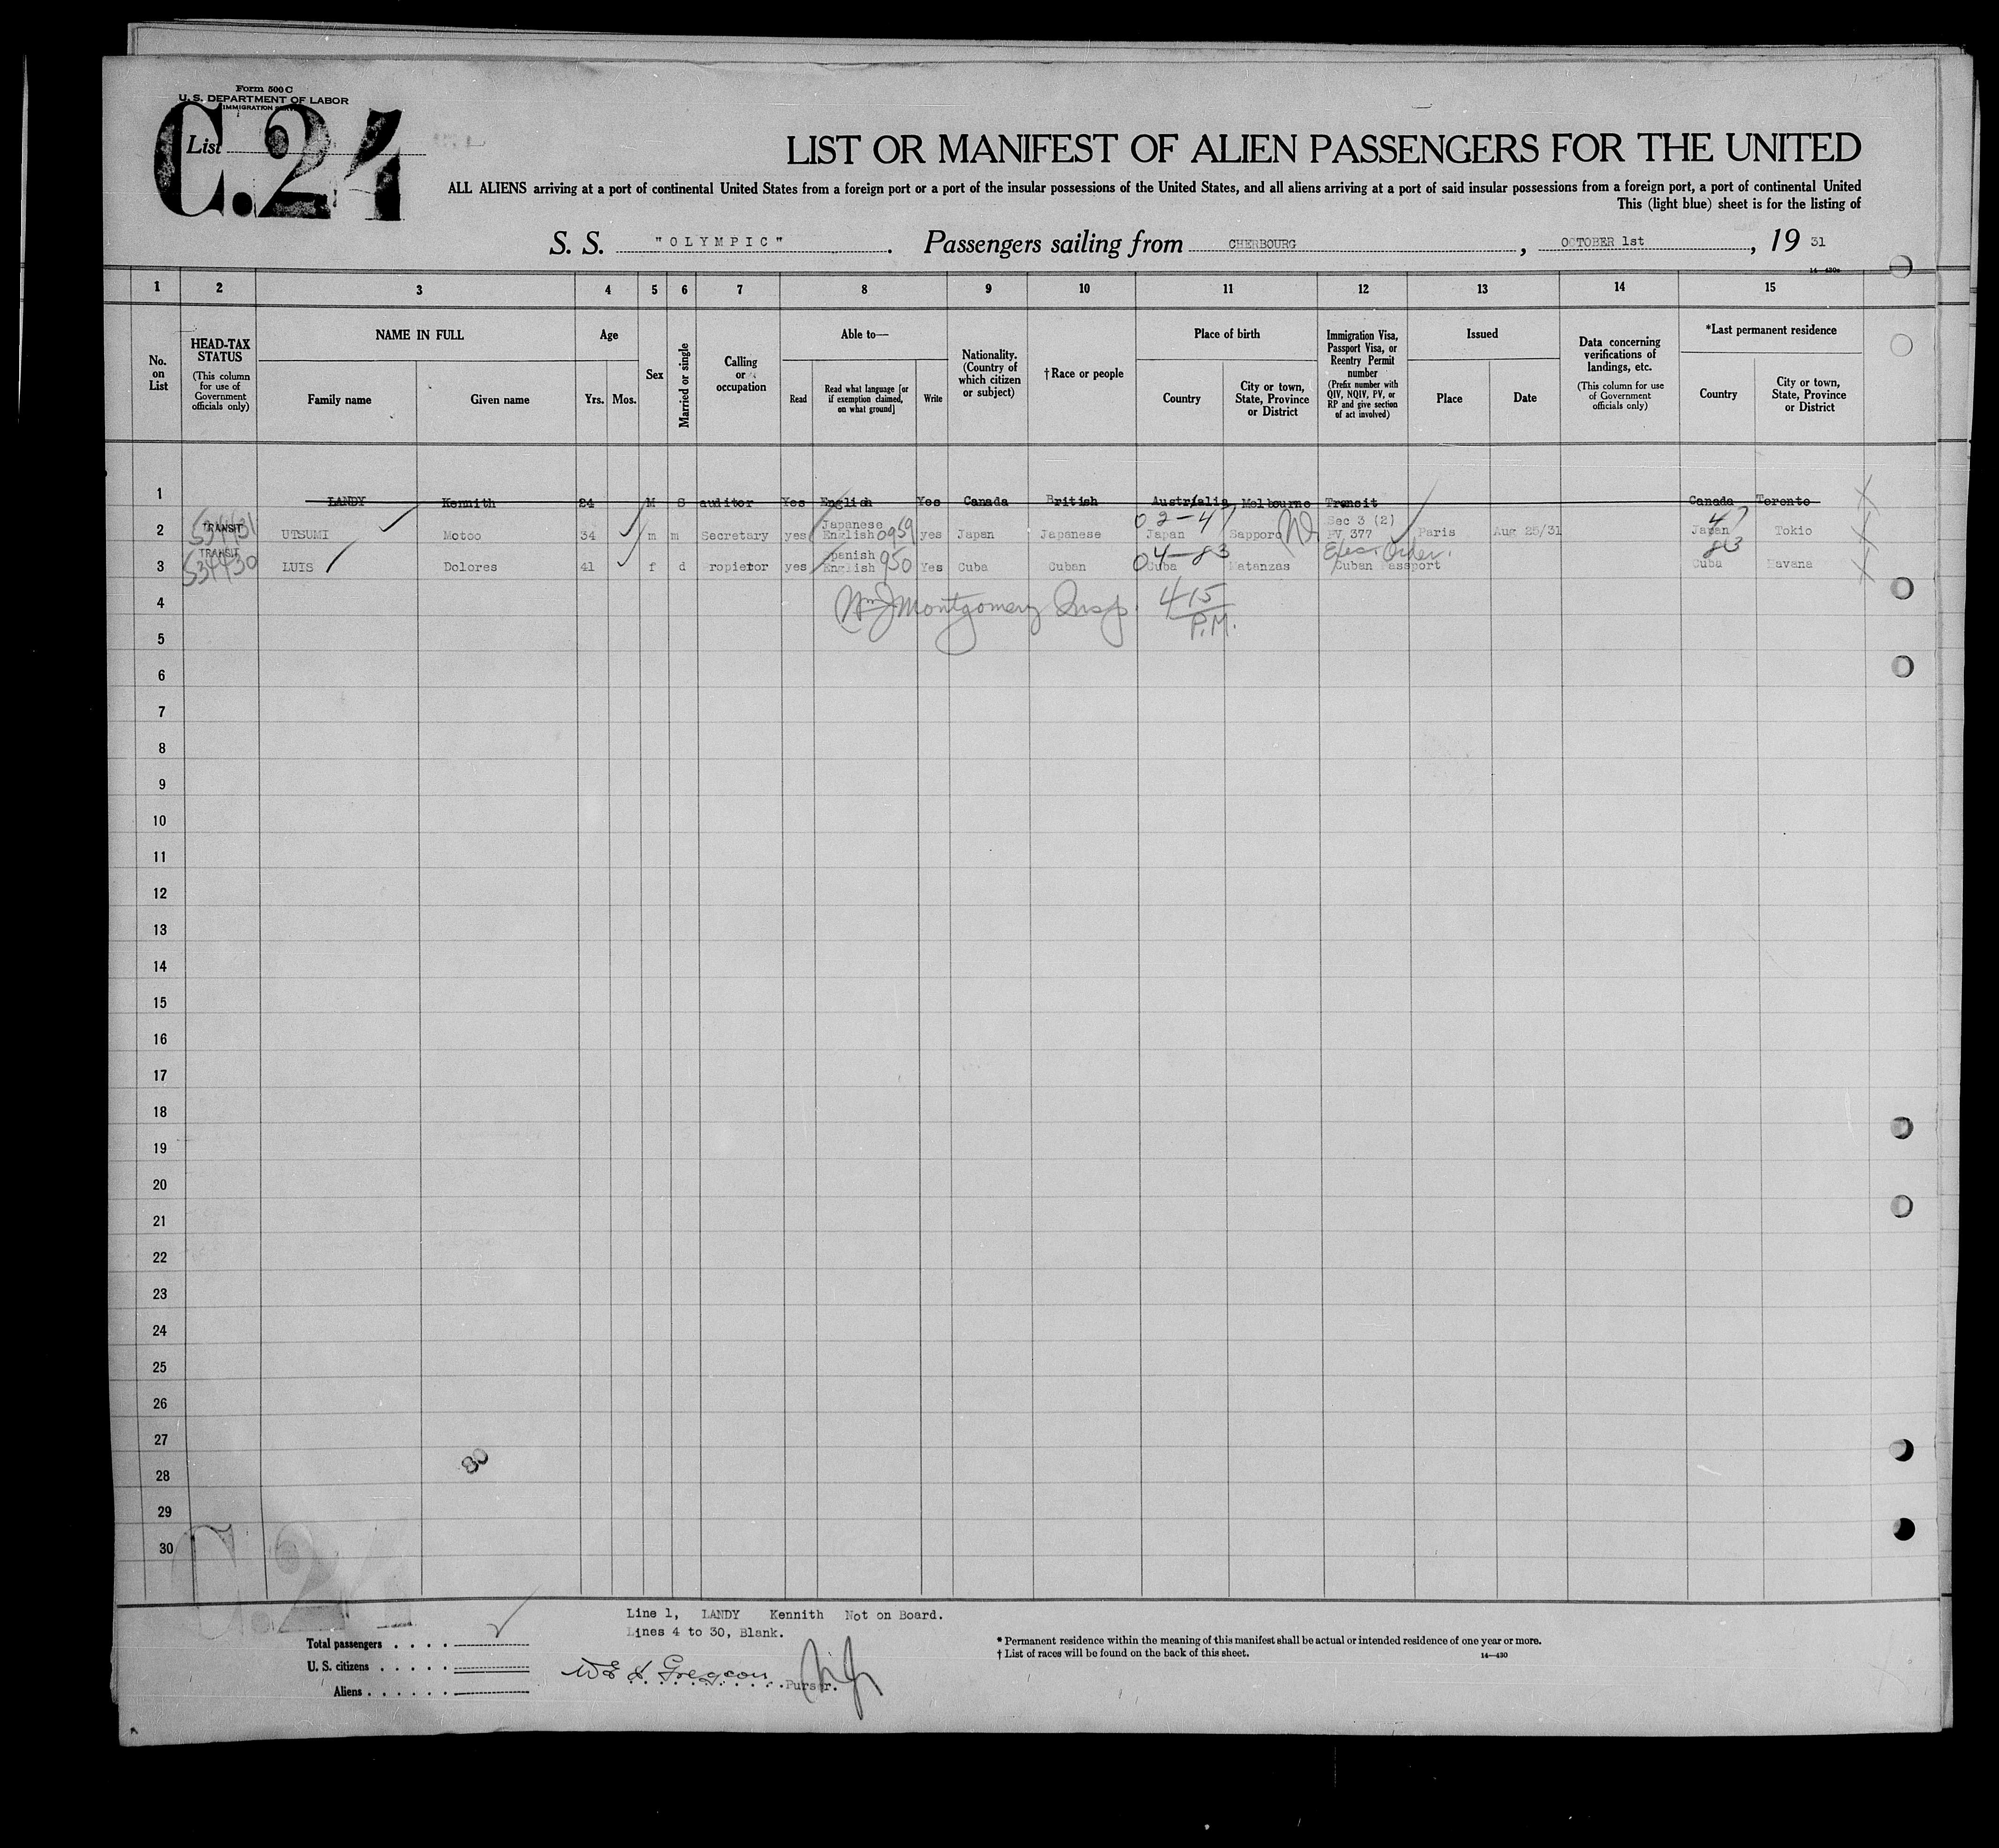 Form 500 C
U. S. DEPARTMENT OF LABOR
IMMIGRATION
List
C.24
LIST OR MANIFEST OF ALIEN PASSENGERS FOR THE UNITED
ALL ALIENS arriving at a port of continental United States from a foreign port or a port of the insular possessions of the United States, and all aliens arriving at a port of said insular possessions from a foreign port, a port of continental United
This (light blue) sheet is for the listing of
S. S. "OLYMPIC". Passengers sailing from CHERBOURG, OCTOBER 1st, 19 31
14—430a
1 2 3 4 5 6 7 8 9 10 11 12 13 14 15
No. on List
HEAD-TAX STATUS (This column for use of Government officials only)
NAME IN FULL
Family name
Given name
Age
Yrs. Mos.
Sex
Married or single
Calling or occupation
Able to—
Read
Read what language [or if exemption claimed, on what ground]
Write
Nationality. (Country of which citizen or subject)
†Race or people
Place of birth
Country
City or town, State, Province or District
Immigration Visa, Passport Visa, or Reentry Permit number (Prefix number with QIV, NQIV, PV, or RP and give section of act involved)
Issued
Place
Date
Data concerning verifications of landings, etc. (This column for use of Government officials only)
*Last permanent residence
Country
City or town, State, Province or District
1 LANDY Kennith 24 M S auditor Yes English Yes Canada British Australia Melbourne Transit Canada Toronto
02-47 Sec 3 (2) 47
2 TRANSIT 534431 UTSUMI Motoo 34 m m Secretary yes Japanese English 0959 yes Japan Japanese Japan Sapporo PV 377 Paris Aug 25/31 Japan Tokio
04-83 Exec. Order. 83
3 TRANSIT 534430 LUIS Dolores 41 f d Propietor yes Spanish English 950 Yes Cuba Cuban Cuba Matanzas Cuban Passport Cuba Havana
4 Wm J Montgomery Insp. 415 P.M.
5
6
7
8
9
10
11
12
13
14
15
16
17
18
19
20
21
22
23
24
25
26
27
80
28
29
30
C.24
Line 1, LANDY Kennith Not on Board.
Lines 4 to 30, Blank.
Total passengers
U. S. citizens
Aliens
Purser.
* Permanent residence within the meaning of this manifest shall be actual or intended residence of one year or more.
† List of races will be found on the back of this sheet.
14—430